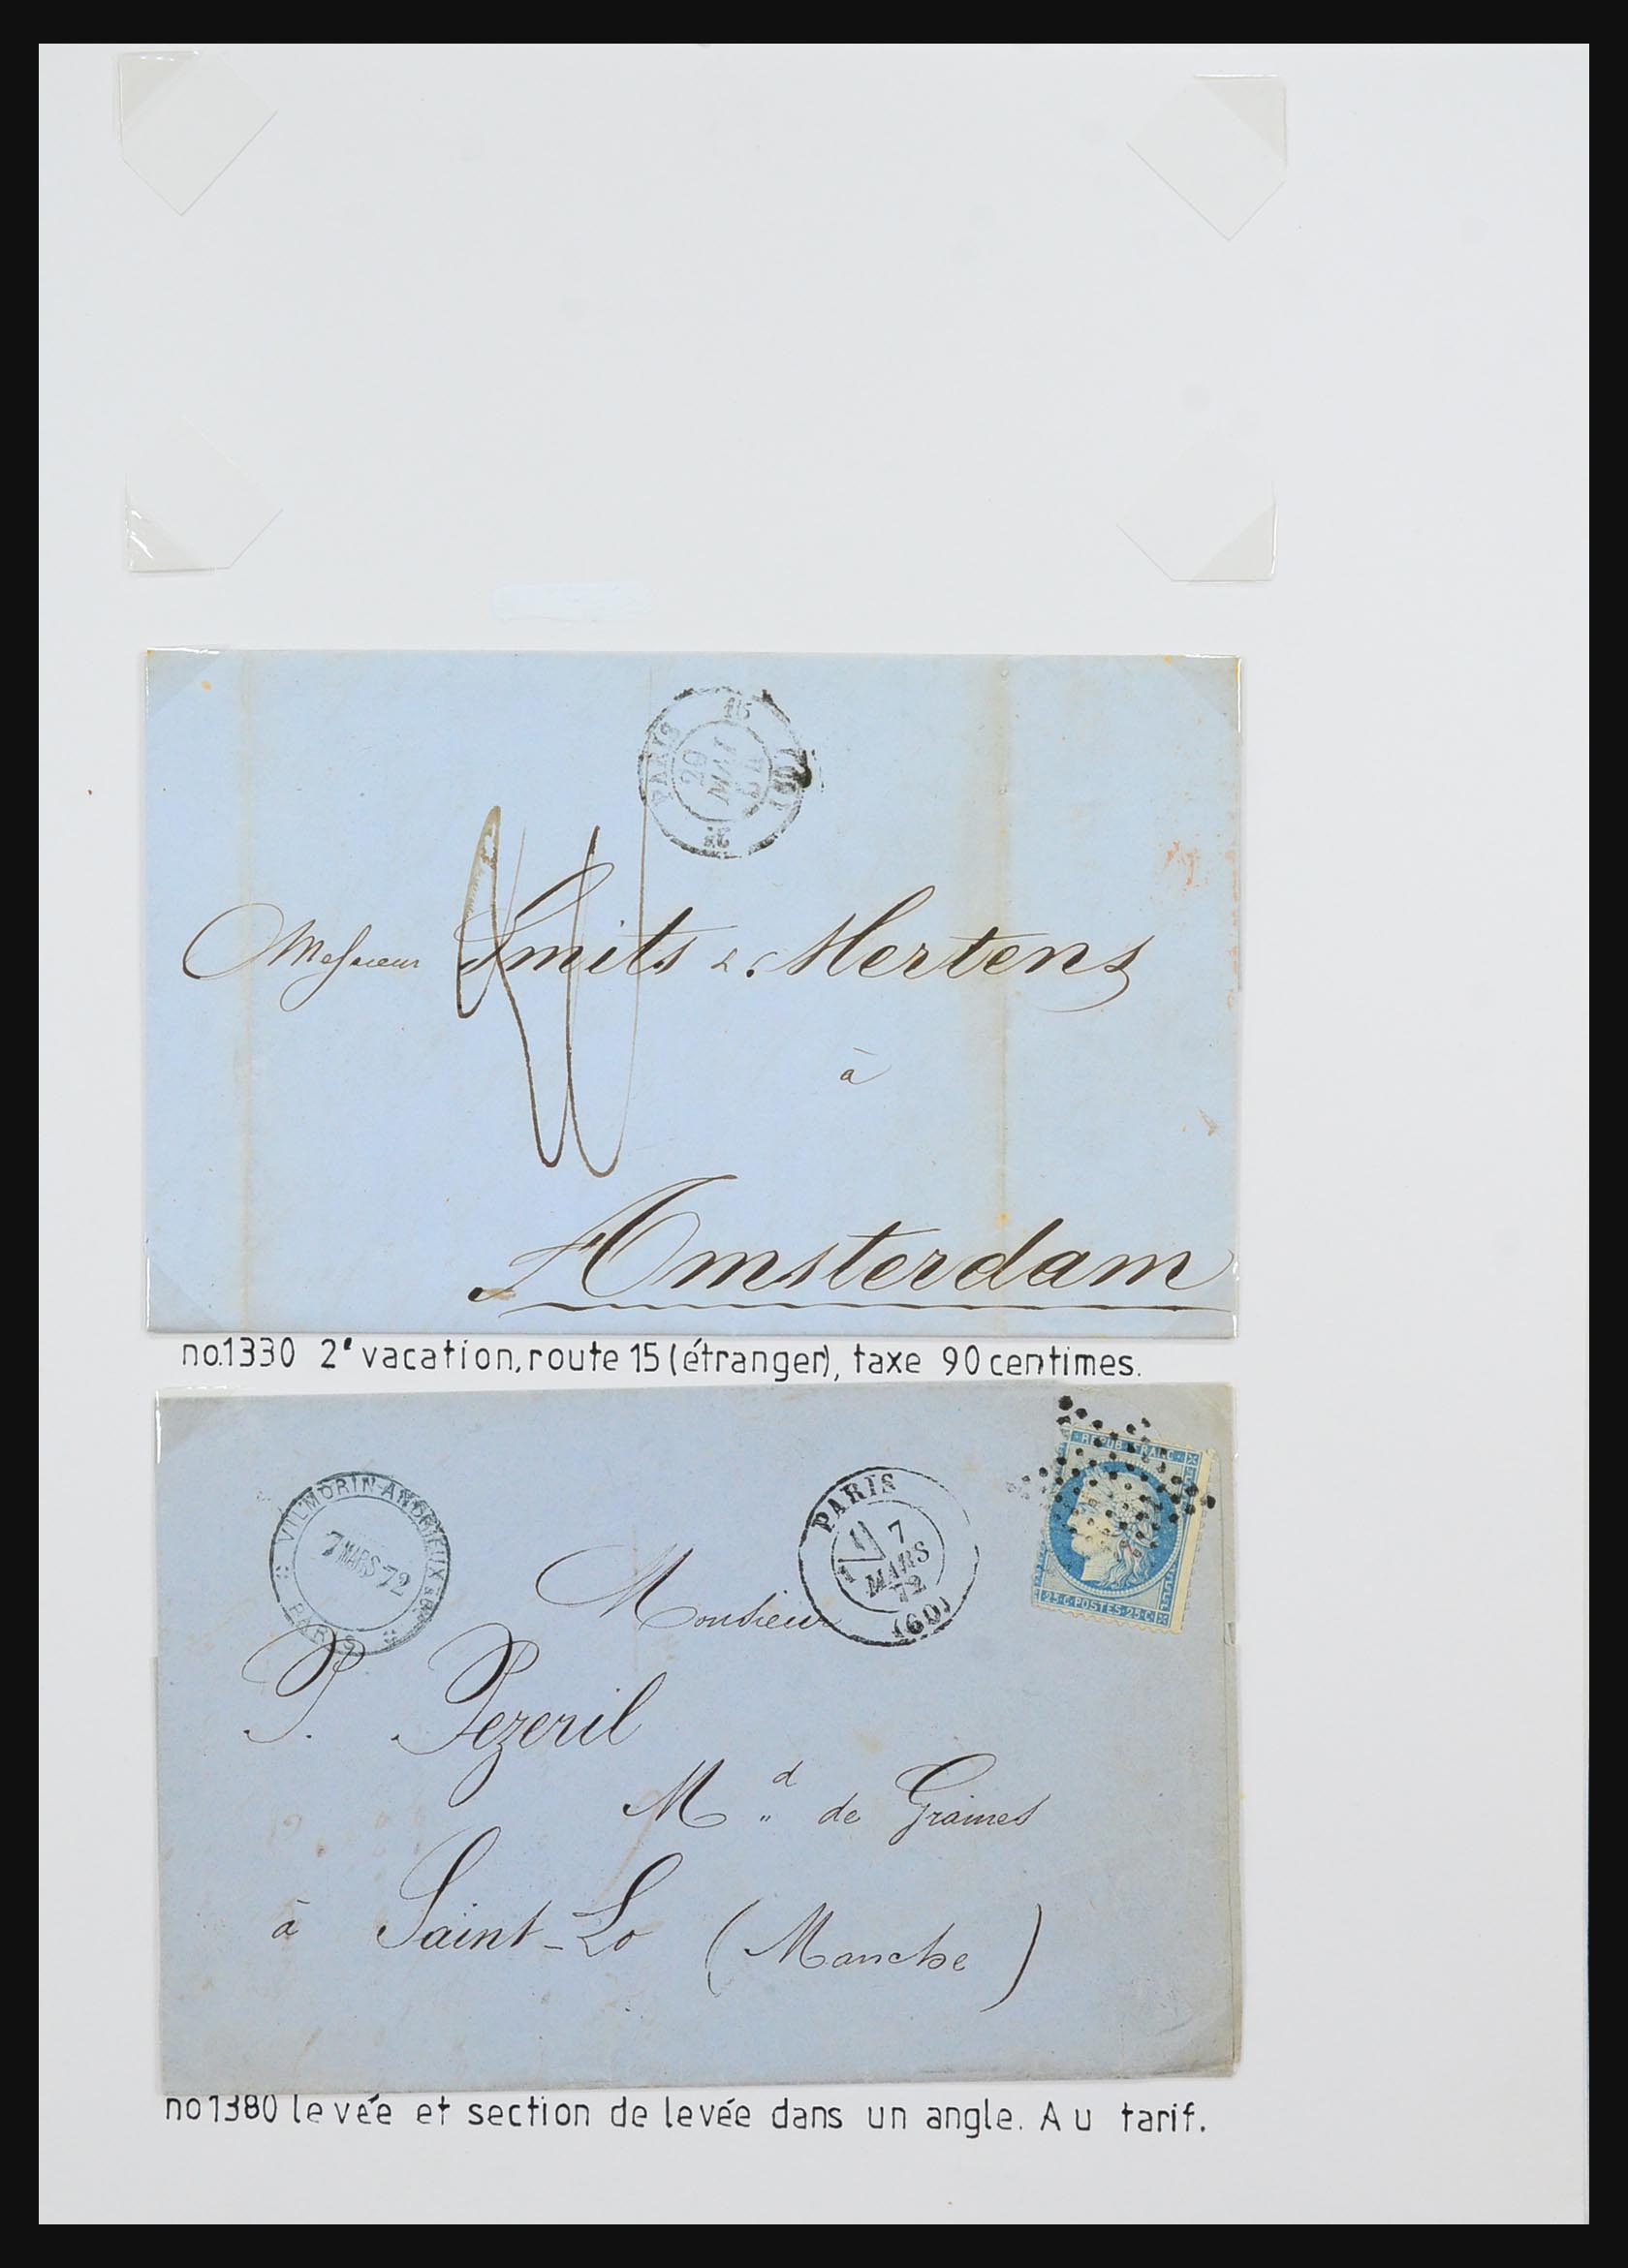 PARIS
15
20
MAI
15
Messieurs Smits & Mertens
à
Amsterdam
no.1330 2e vacation, route 15 (étranger), taxe 90 centimes.
VILMORIN-ANDRIEUX & Cie
7 MARS 72
PARIS
PARIS
7
MARS
72
(60)
REPUB FRANC
25·C·POSTES·25·C
Monsieur
P. Pezeril
Md de Graines
à Saint-Lo (Manche)
no1380 levée et section de levée dans un angle. Au tarif.